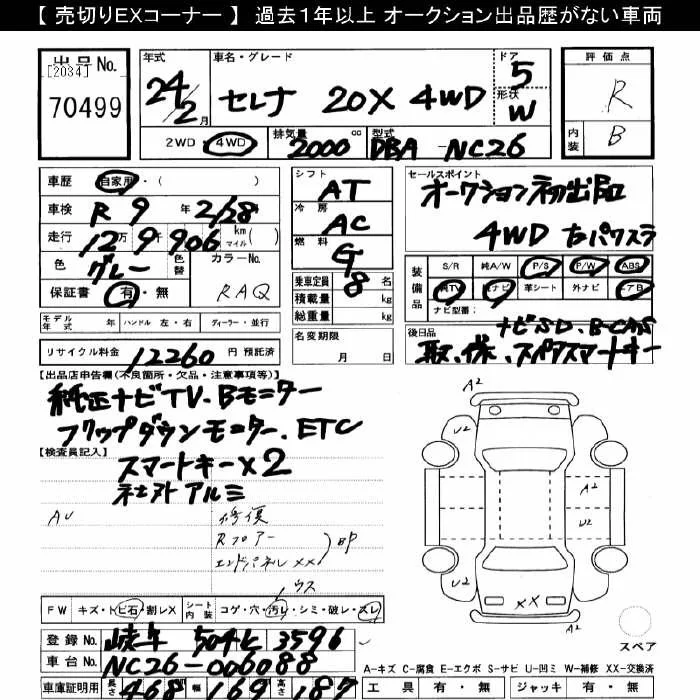 【 売切りEXコーナー 】 過去1年以上 オークション出品歴がない車両
出品No. [2034] 70499
年式 24/2月
車名・グレード セレナ 20X 4WD
ドア 5 形状 W
評価点 R
内装 B
2WD・4WD 排気量 2000 cc 型式 DBA-NC26
車歴 自家用・( )
車検 R 9年 2/28
走行 12万9千906 km マイル ( )
色 グレー 色替 カラーNo. RAQ
保証書 有・無
シフト AT
冷房 AC
燃料 G
乗車定員 8 名
積載量 kg
総重量 kg
セールスポイント
オークション初出品
4WD 右パワスラ
装備品 S/R 純A/W P/S P/W ABS
純TV 純ナビ 革シート 外ナビ エアB
ナビ型番:
モデル年式 年 ハンドル 左・右 ディーラー・並行
名変期限 月 日
後日品 ナビSD.B-CAS
取.保.スペアスマートキー
リサイクル料金 12260 円 預託済
【出品店申告欄(不良箇所・欠品・注意事項等)】
純正ナビTV.Bモニター
フリップダウンモニター.ETC
【検査員記入】
スマートキー×2
社外アルミ
AU 修復
Rフロアー
エンドパネル××
ウス
FW キズ・トビ石・割レX シート内装 コゲ・穴・汚レ・シミ・破レ・スレ
A2
U2
A2
U2
U2
××
スペア
登録No. 岐阜 504 と 3596
車台No. NC26-006088
A-キズ C-腐食 E-エクボ S-サビ U-凹ミ W-補修 XX-交換済
車庫証明用 長さ 468 幅 169 高さ 187
工具 有・無 ジャッキ 有・無